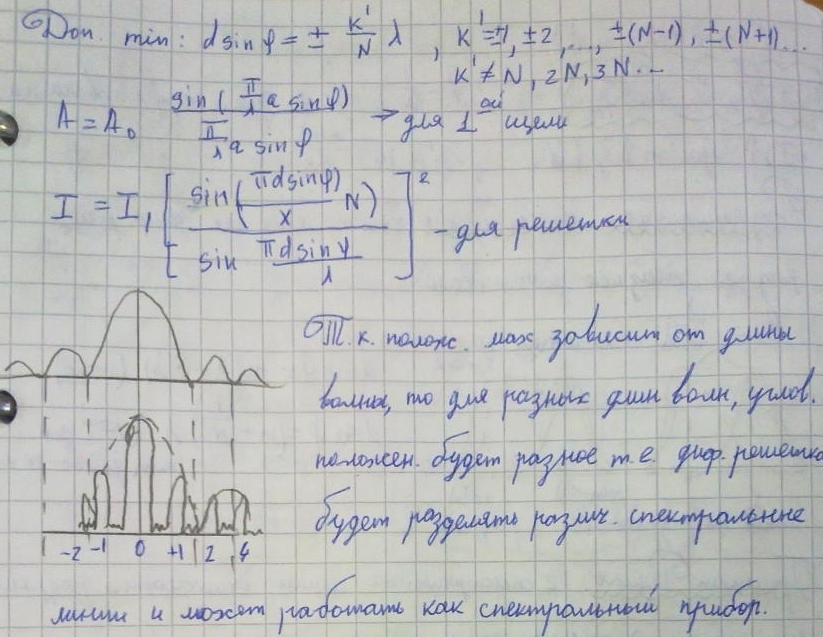 Доп. min: d sin φ = ± K'/N λ , K' = ±1, ±2, ..., ±(N-1), ±(N+1)...
K' ≠ N, 2N, 3N...
A = A₀ sin(π/λ a sin φ) / (π/λ a sin φ) → для 1ой щели
I = I₁ [sin(πd sin φ/λ N) / sin πd sin φ/λ]² - для решетки
Т.к. полож. max зависит от длины
волны, то для разных длин волн, углов.
положен. будет разное т.е. диф. решетка
будет разделять различ. спектральные
-2 -1 0 +1 2 4
линии и может работать как спектральный прибор.